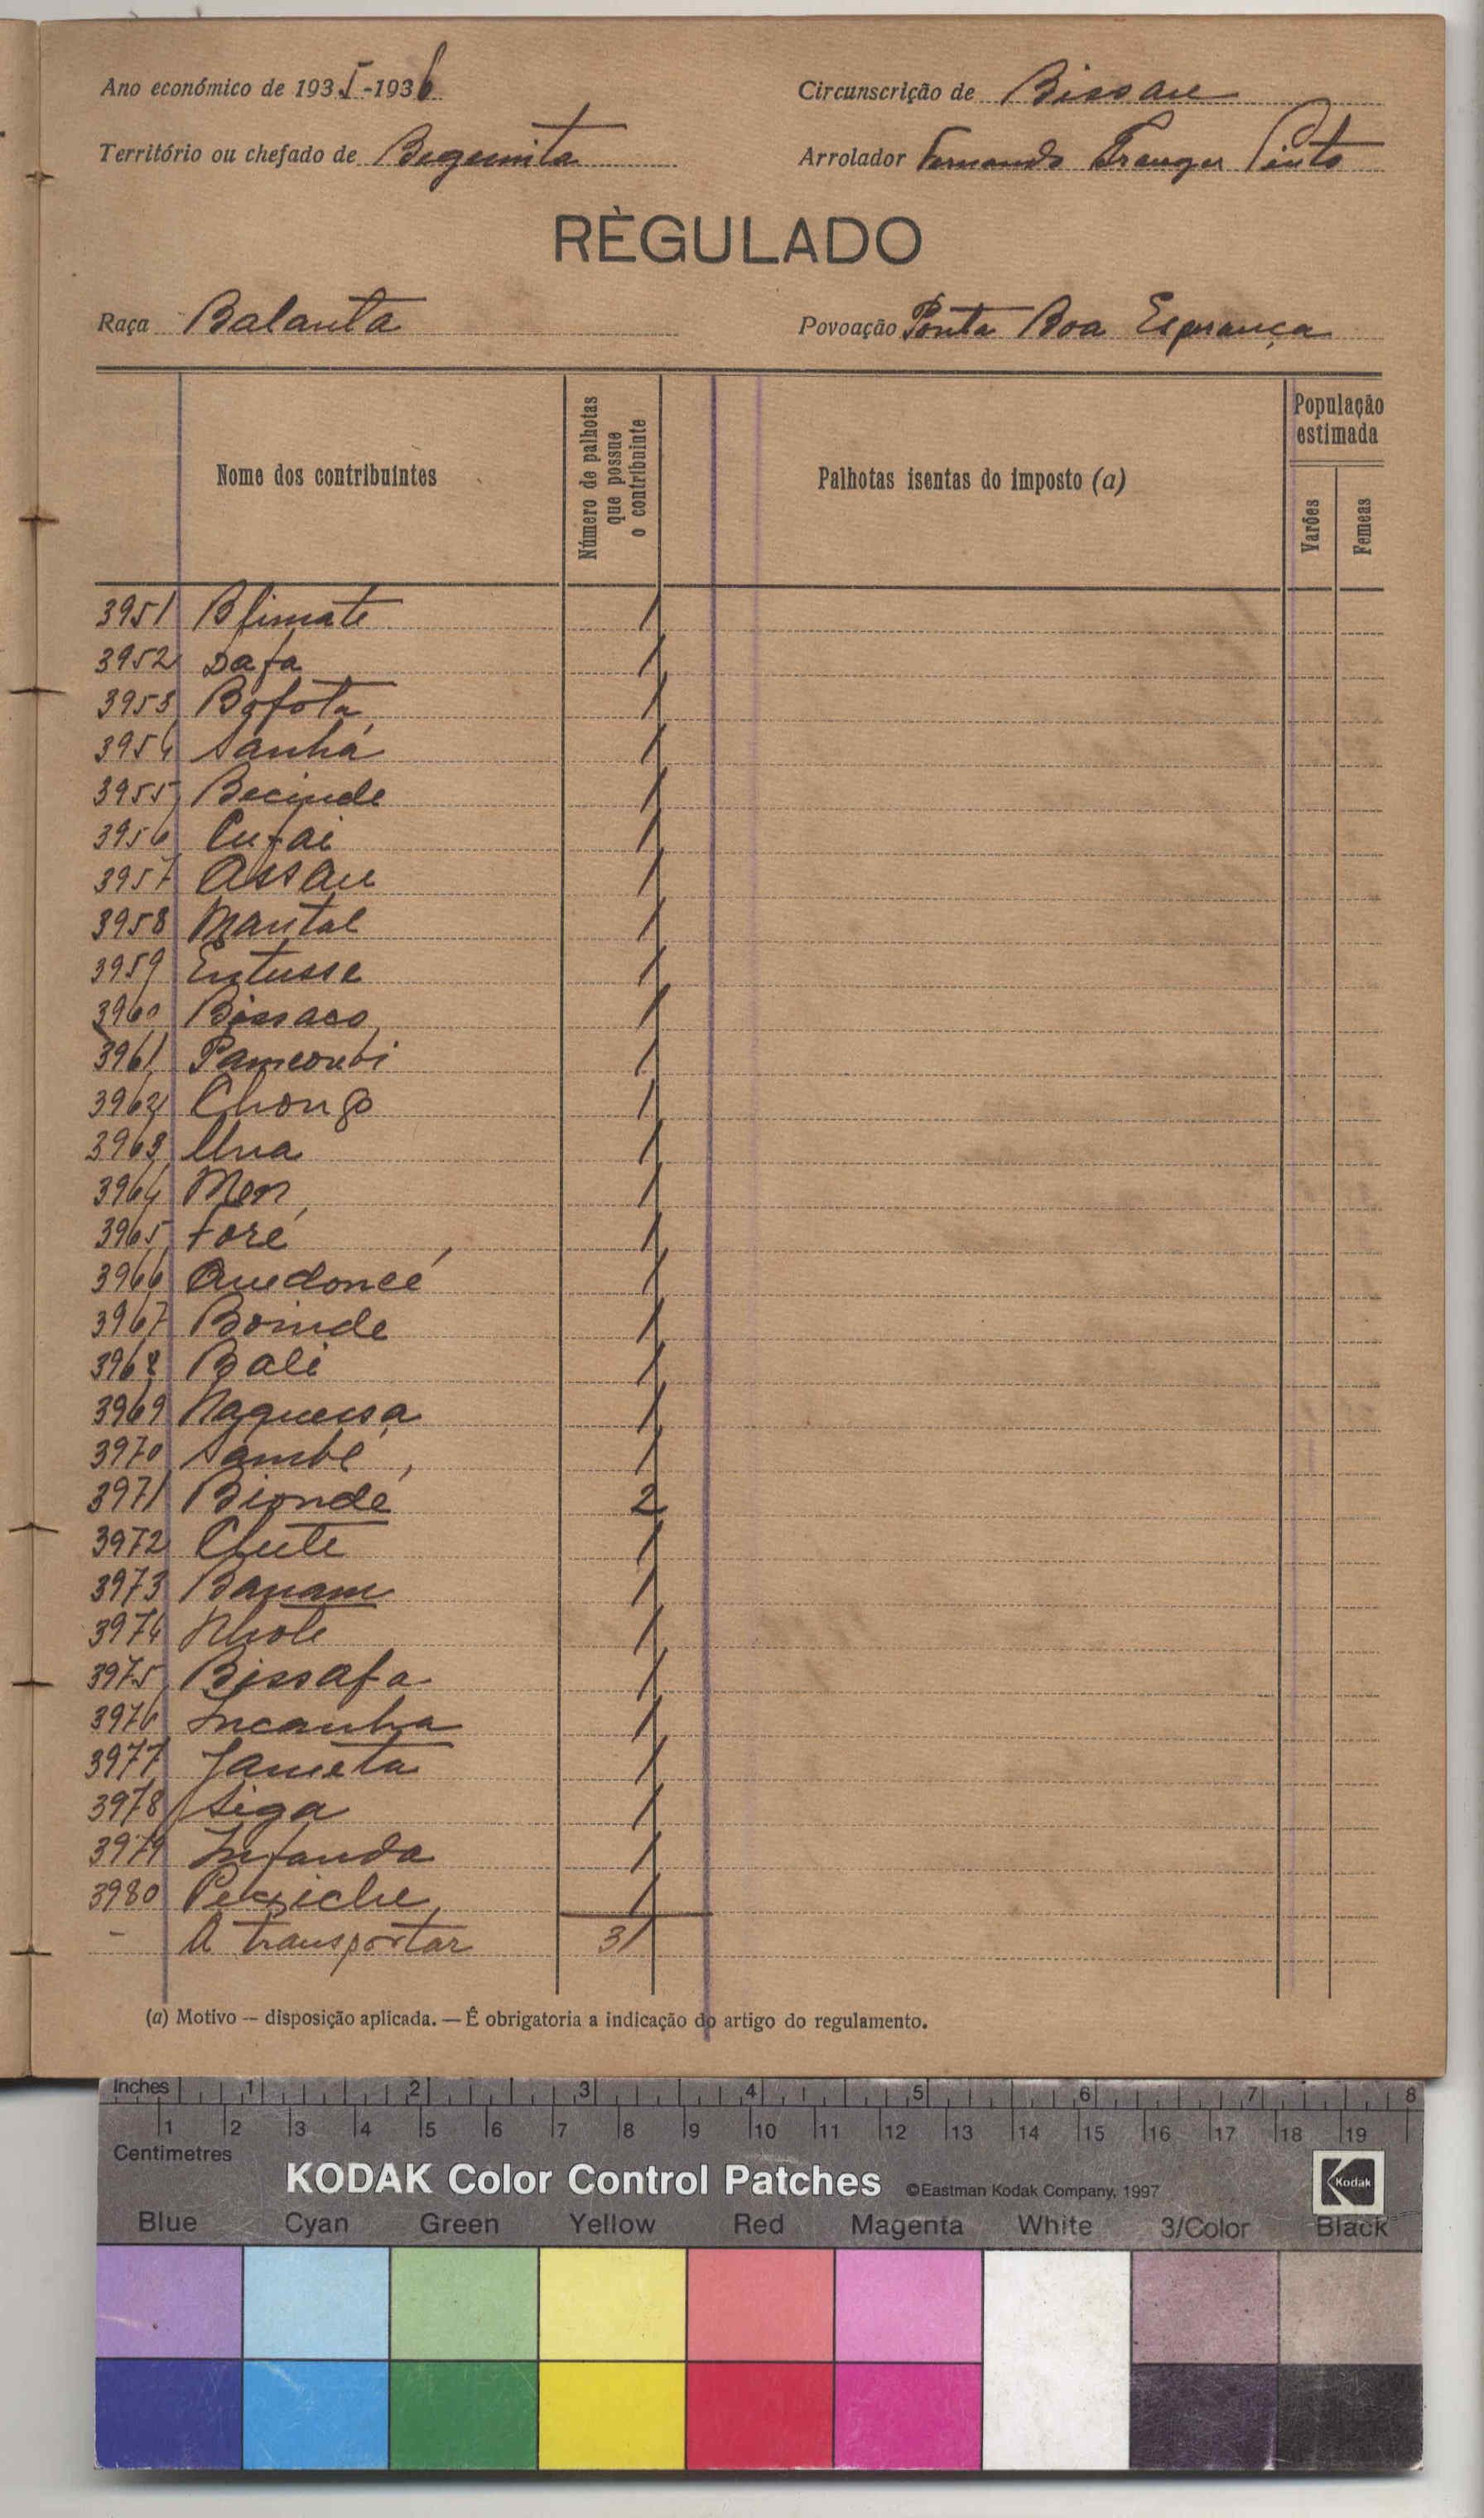 Ano económico de 1935-1936 Circunscrição de Bissau
Território ou chefado de Begemita Arrolador Fernando Pranger Pinto
RÈGULADO
Raça Balanta Povoação Ponta Boa Esperança
Nome dos contribuintes
Número de palhotas que possue o contribuinte
Palhotas isentas do imposto (a)
População estimada
Varões
Femeas
3951 Blimate 1
3952 Dafa 1
3953 Bofota 1
3954 Sanhá 1
3955 Becinde 1
3956 Cufai 1
3957 Assau 1
3958 Mantal 1
3959 Entusse 1
3960 Bissaco 1
3961 1
3962 Chongo 1
3963 Una 1
3964 Mon 1
3965 Foré 1
3966 Quedoncé 1
3967 Boinde 1
3968 Bali 1
3969 Naquessa 1
3970 Sambé 1
3971 Biondé 2
3972 Chute 1
3973 Banam 1
3974 Nhote 1
3975 Bissafa 1
3976 Incanha 1
3977 Jameta 1
3978 Siga 1
3979 Infanda 1
3980 1
- A transportar 31
(a) Motivo — disposição aplicada. — É obrigatoria a indicação do artigo do regulamento.
Inches 1 2 3 4 5 6 7 8
1 2 3 4 5 6 7 8 9 10 11 12 13 14 15 16 17 18 19
Centimetres
KODAK Color Control Patches ©Eastman Kodak Company, 1997 Kodak
Blue Cyan Green Yellow Red Magenta White 3/Color Black